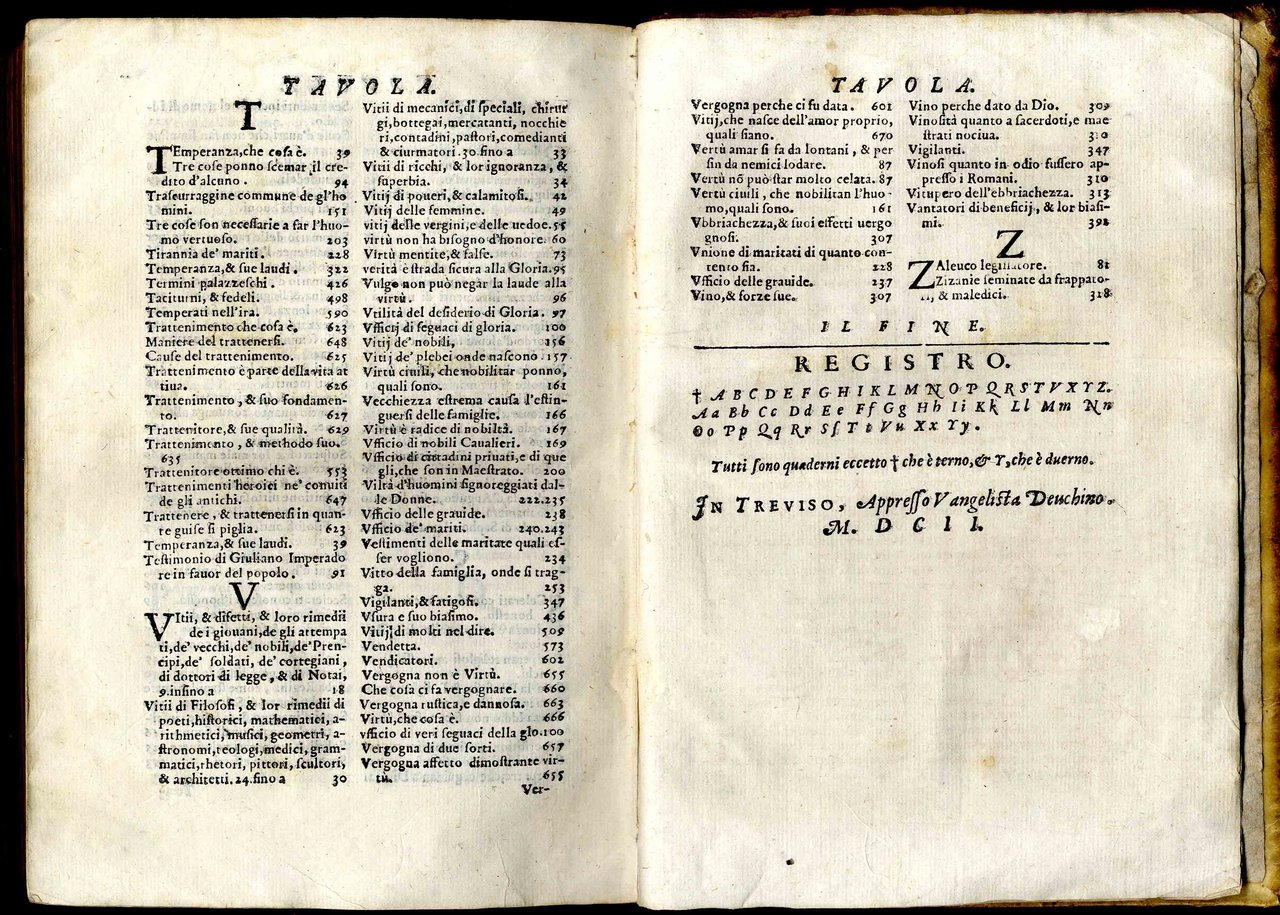 TAVOLA.
T
TEmperanza, che cosa è. 39
Tre cose ponno scemar il cre-
dito d'alcuno. 94
Trascurraggine commune de gl'ho
mini. 151
Tre cose son necessarie a far l'huo-
mo vertuoso. 203
Tirannia de' mariti. 228
Temperanza, & sue laudi. 322
Termini palazzeschi. 426
Taciturni, & fedeli. 498
Temperati nell'ira. 590
Trattenimento che cosa è. 623
Maniere del trattenersi. 648
Cause del trattenimento. 625
Trattenimento è parte della vita at
tiua. 626
Trattenimento, & suo fondamen-
to. 627
Trattenitore, & sue qualità. 629
Trattenimento, & methodo suo.
635
Trattenitore ottimo chi è. 553
Trattenimenti heroici ne' conuiti
de gli antichi. 647
Trattenere, & trattenersi in quan-
te guise si piglia. 623
Temperanza, & sue laudi. 39
Testimonio di Giuliano Imperado
re in fauor del popolo. 91
V
VItii, & difetti, & loro rimedii
de i giouani, de gli attempa
ti, de' vecchi, de' nobili, de' Pren-
cipi, de' soldati, de' cortegiani,
di dottori di legge, & di Notai,
9. insino a 18
Vitii di Filosofi, & lor rimedii di
poeti, historici, mathematici, a-
rithmetici, musici, geometri, a-
stronomi, teologi, medici, gram-
matici, rhetori, pittori, scultori,
& architetti. 24. fino a 30
Vitii di mecanici, di speciali, chirur
gi, bottegai, mercatanti, nocchie
ri, contadini, pastori, comedianti
& ciurmatori. 30. fino a 33
Vitii di ricchi, & lor ignoranza, &
superbia. 34
Vitij di poueri, & calamitosi. 42
Vitij delle femmine. 49
vitij delle vergini, e delle uedoe. 55
virtù non ha bisogno d'honore. 60
Virtù mentite, & false. 73
verità è strada sicura alla Gloria. 95
Vulgo non può negàr la laude alla
virtù. 96
Vtilità del desiderio di Gloria. 97
Vfficij di seguaci di gloria. 100
Vitij de' nobili, 156
Vitij de' plebei onde nascono. 157
Virtù ciuili, che nobilitar ponno,
quali sono. 161
Vecchiezza estrema causa d'estin-
guersi delle famiglie. 166
Virtù è radice di nobiltà. 167
Vfficio di nobili Caualieri. 169
Vfficio di cittadini priuati, e di que
gli, che son in Maestrato. 200
Viltà d'huomini signoreggiati dal-
le Donne. 222.235
Vfficio delle grauide. 238
Vfficio de' mariti. 240.243
Vestimenti delle maritate quali es-
ser vogliono. 234
Vitto della famiglia, onde si trag-
ga. 253
Vigilanti, & fatigosi. 347
Vsura e suo biasimo. 436
Vitij di molti nel dire. 509
Vendetta. 573
Vendicatori. 602
Vergogna non è Virtù. 655
Che cosa ci fa vergognare. 660
Vergogna rustica, e dannosa. 663
Virtù, che cosa è. 666
vfficio di veri seguaci della glo. 100
Vergogna di due sorti. 657
Vergogna affetto dimostrante vir-
tù. 655
Ver-
TAVOLA.
Vergogna perche ci fu data. 601
Vitij, che nasce dell'amor proprio,
quali siano. 670
Vertù amar si fa da lontani, & per
sin da nemici lodare. 87
Vertù nō può star molto celata. 87
Vertù ciuili, che nobilitan l'huo-
mo, quali sono. 161
Vbbriachezza, & suoi effetti uergo
gnosi. 307
Vnione di maritati di quanto con-
tento sia. 228
Vfficio delle grauide. 237
Vino, & forze sue. 307
Vino perche dato da Dio. 309
Vinosità quanto a sacerdoti, e mae
strati nociua. 310
Vigilanti. 347
Vinosi quanto in odio fussero ap-
presso i Romani. 310
Vitupero dell'ebbriachezza. 313
Vantatori di beneficij, & lor biasi-
mi. 392
Z
ZAleuco legislatore. 81
Zizanie seminate da frappato-
ri, & maledici. 328
IL FINE.
REGISTRO.
† A B C D E F G H I K L M N O P Q R S T V X Y Z.
Aa Bb Cc Dd Ee Ff Gg Hh Ii Kk Ll Mm Nn
Oo Pp Qq Rr Sſ Tt Vu Xx Yy.
Tutti sono quaderni eccetto † che è terno, & Y, che è duerno.
IN TREVISO, Appresso Vangelista Deuchino.
M. D C I I.